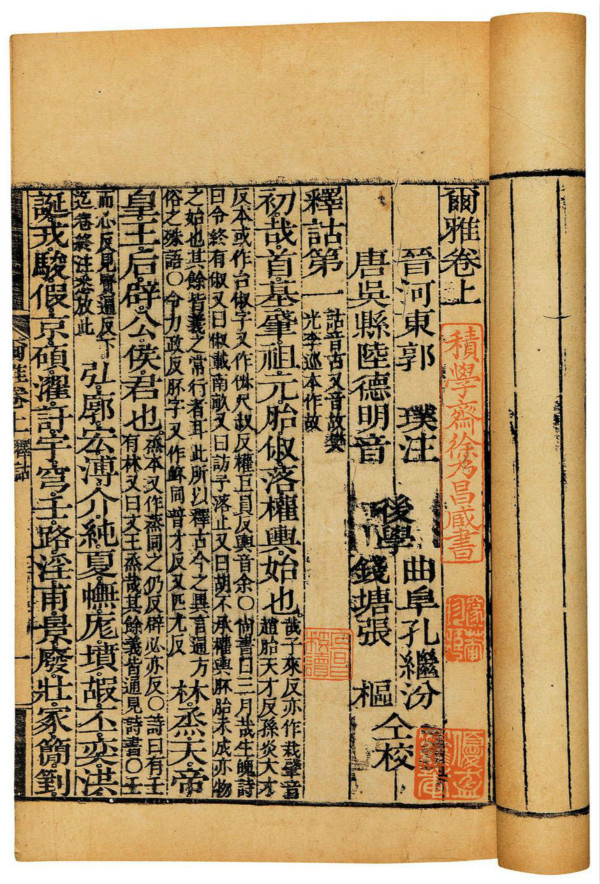 爾雅卷上
晉河東郭 璞注 後學 曲阜孔繼汾
唐吳縣陸德明音 錢塘張 樞 仝校
釋詁第一
詁音古又音故樊
光李巡本作故
初哉首基肇祖元胎俶落權輿始也
哉子來反亦作栽肇音
趙胎天才反孫炎大才
反本或作台俶字又作尺叔反權巨員反輿音余○尚書曰三月哉生魄詩
曰令終有俶又曰俶載南畝又曰訪予落止又曰胡不承權輿胚胎未成亦物
之始也其餘皆義之常行者耳此所以釋古今之異言通方
俗之殊語○令力政反胚字又作同普才反又匹尤反
林烝天帝
皇王后辟公侯君也
烝本又作蒸同之仍反辟必亦反○詩曰有壬
有林又曰文王烝哉其餘義皆通見詩書○壬
而心反見賢遍反下
迄卷終注悉放此
弘廓宏溥介純夏幠厖墳嘏丕奕洪
誕戎駿假京碩濯訏宇穹壬路淫甫景廢壯冢簡箌
爾雅卷上 釋詁 一
積學齋徐乃昌藏書